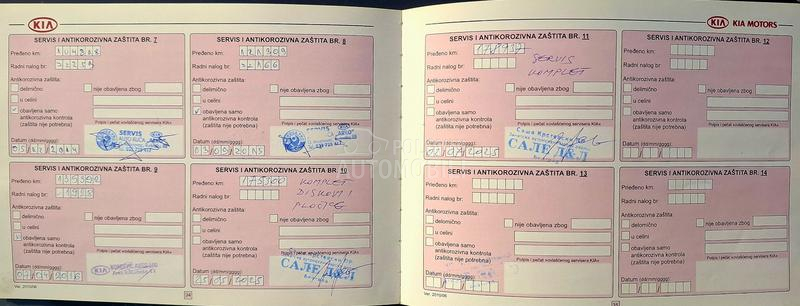 KIA
SERVIS I ANTIKOROZIVNA ZAŠTITA BR. 7
Pređeno km: 104218
Radni nalog br:
Antikorozivna zaštita:
delimično
nije obavljena zbog
u celini
obavljena samo
antikorozivna kontrola
(zaštita nije potrebna)
Potpis i pečat ovlašćenog servisera KIA
SERVIS
Datum (dd/mm/gggg)
05 12 2014
SERVIS I ANTIKOROZIVNA ZAŠTITA BR. 8
Pređeno km: 121309
Radni nalog br:
Antikorozivna zaštita:
delimično
nije obavljena zbog
u celini
obavljena samo
antikorozivna kontrola
(zaštita nije potrebna)
Potpis i pečat ovlašćenog servisera KIA
SERVIS
Datum (dd/mm/gggg)
03 09 2015
SERVIS I ANTIKOROZIVNA ZAŠTITA BR. 9
Pređeno km:
Radni nalog br:
Antikorozivna zaštita:
delimično
nije obavljena zbog
u celini
obavljena samo
antikorozivna kontrola
(zaštita nije potrebna)
Potpis i pečat ovlašćenog servisera KIA
KIA
Datum (dd/mm/gggg)
07 04 2016
Ver. 2010/06
SERVIS I ANTIKOROZIVNA ZAŠTITA BR. 10
Pređeno km: 175500
KOMPLET
Radni nalog br:
DISKOVI I
PLOČICE
Antikorozivna zaštita:
delimično
nije obavljena zbog
u celini
obavljena samo
antikorozivna kontrola
(zaštita nije potrebna)
САЛЕ Д&Л
Datum (dd/mm/gggg)
05 2025
34
KIA KIA MOTORS
SERVIS I ANTIKOROZIVNA ZAŠTITA BR. 11
Pređeno km: 178937
SERVIS
KOMPLET
Radni nalog br:
Antikorozivna zaštita:
delimično
nije obavljena zbog
u celini
obavljena samo
antikorozivna kontrola
(zaštita nije potrebna)
САЛЕ Д&Л
Datum (dd/mm/gggg)
02 07 2025
SERVIS I ANTIKOROZIVNA ZAŠTITA BR. 12
Pređeno km:
Radni nalog br:
Antikorozivna zaštita:
delimično
nije obavljena zbog
u celini
obavljena samo
antikorozivna kontrola
(zaštita nije potrebna)
Potpis i pečat ovlašćenog servisera KIA
Datum (dd/mm/gggg)
SERVIS I ANTIKOROZIVNA ZAŠTITA BR. 13
Pređeno km:
Radni nalog br:
Antikorozivna zaštita:
delomično
nije obavljena zbog
u celini
obavljena samo
antikorozivna kontrola
(zaštita nije potrebna)
Potpis i pečat ovlašćenog servisera KIA
Datum (dd/mm/gggg)
Ver. 2010/06
SERVIS I ANTIKOROZIVNA ZAŠTITA BR. 14
Pređeno km:
Radni nalog br:
Antikorozivna zaštita:
delomično
nije obavljena zbog
u celini
obavljena samo
antikorozivna kontrola
(zaštita nije potrebna)
Potpis i pečat ovlašćenog servisera KIA
Datum (dd/mm/gggg)